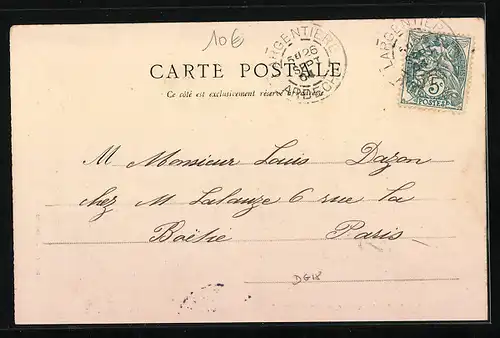 10€
CARTE POSTALE
Ce côté est exclusivement réservé à l'adresse
LARGENTIERE
26
SEPT
ARDECHE
LARGENTIERE
5c
POSTES
M Monsieur Louis Dazon
chez M Lalauze 6 rue la
Boëtie Paris
DG18